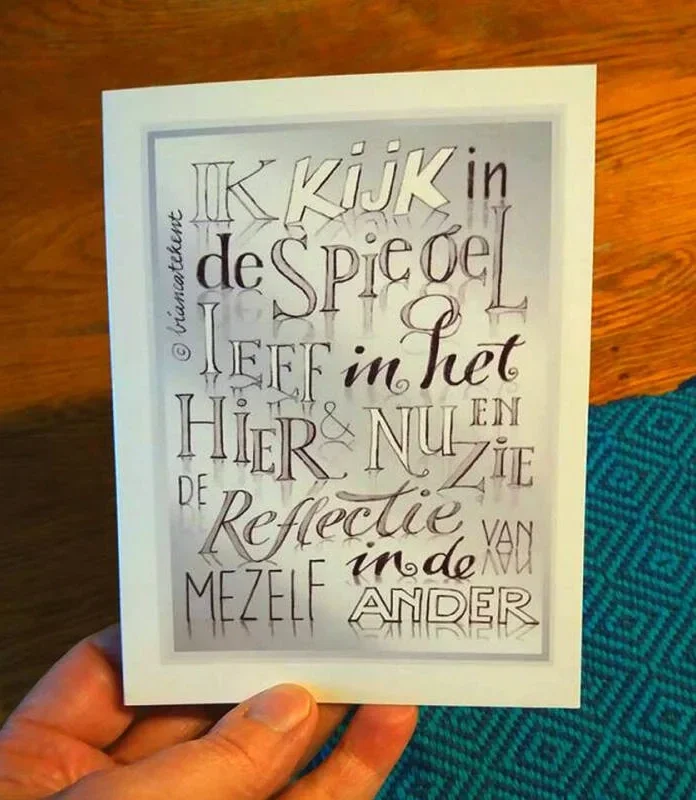 IK KijK in
de SpiegeL
lEEF in het
HiER & NU EN ZiE
DE Reflectie VAN
MEZELF in de ANDER
© biancatekent